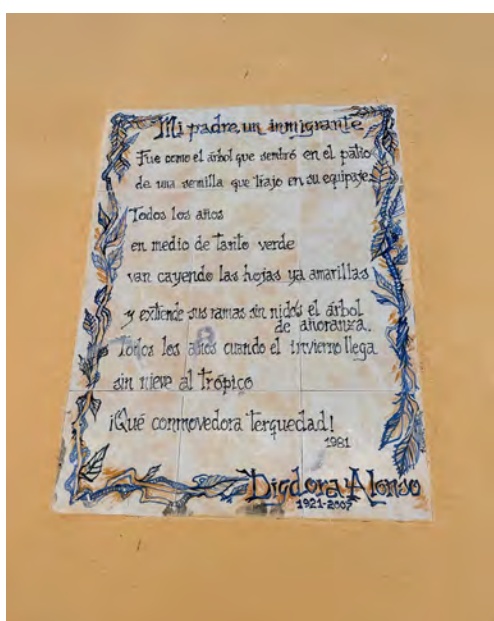 Mi padre, un inmigrante
Fue como el árbol que sembró en el patio
de una semilla que trajo en su equipaje.
Todos los años
en medio de tanto verde
van cayendo las hojas ya amarillas
y extiende sus ramas sin nidos el árbol
de añoranza.
Todos los años cuando el invierno llega
sin nieve al trópico
¡Qué conmovedora terquedad!
1981
Digdora Alonso
1921-2007